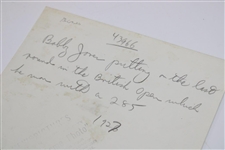 4766
Bobby Jones putting on the last
round in the British open which
he won with a 285
1927